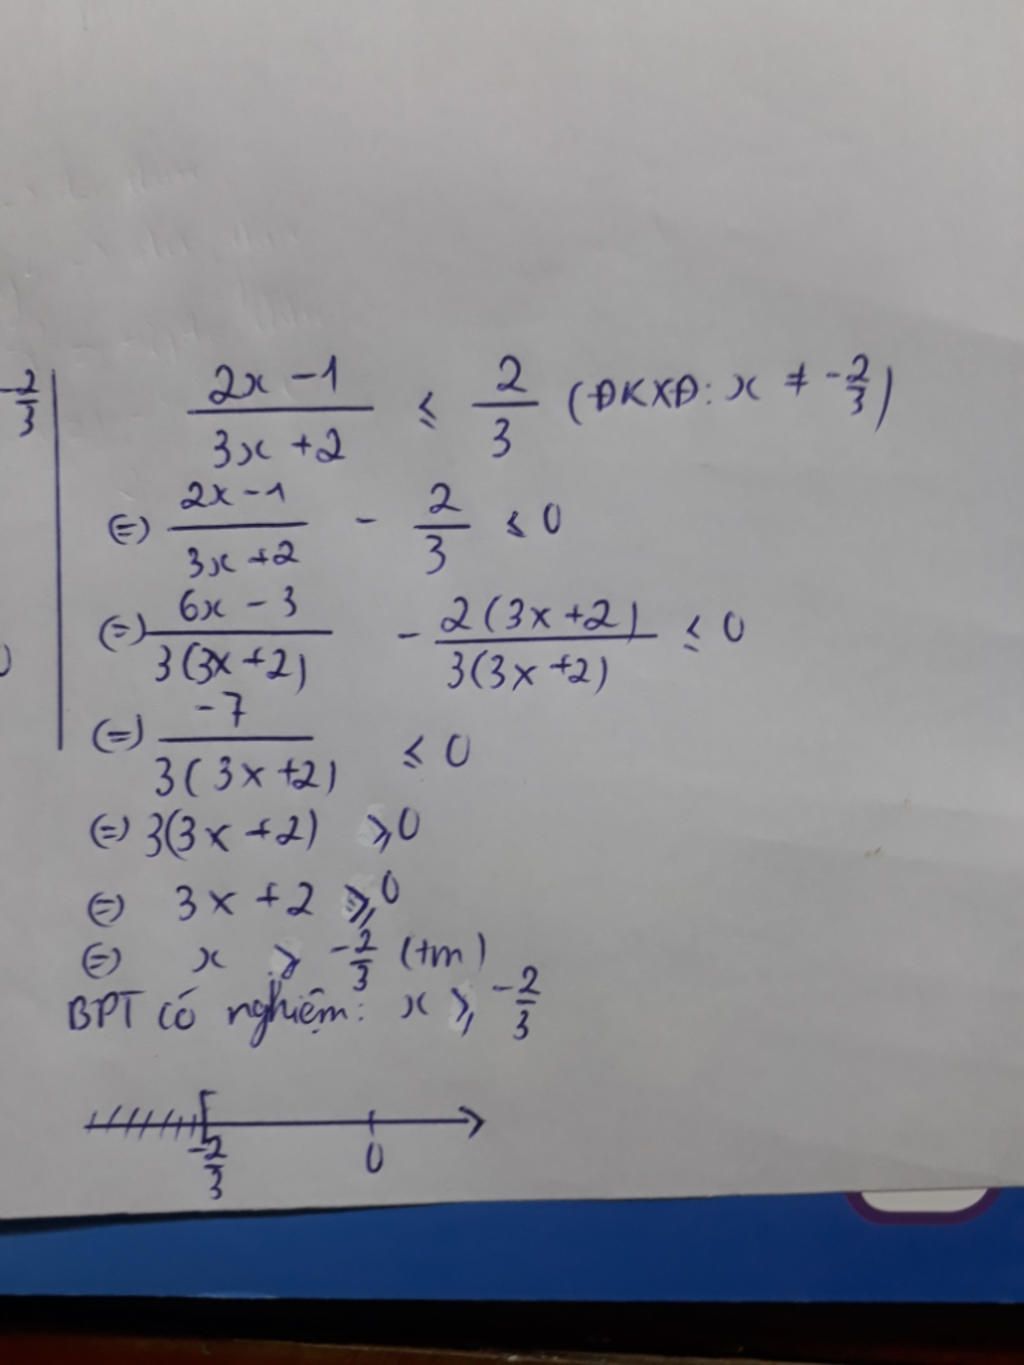 -2/3
(2x - 1)/(3x + 2) ≤ 2/3 (ĐKXĐ: x ≠ -2/3)
(=) (2x - 1)/(3x + 2) - 2/3 ≤ 0
(=) (6x - 3)/(3(3x + 2)) - (2(3x + 2))/(3(3x + 2)) ≤ 0
(=) (-7)/(3(3x + 2)) ≤ 0
(=) 3(3x + 2) ≥ 0
(=) 3x + 2 ≥ 0
(=) x ≥ -2/3 (tm)
BPT có nghiệm: x ≥ -2/3
-2/3 0